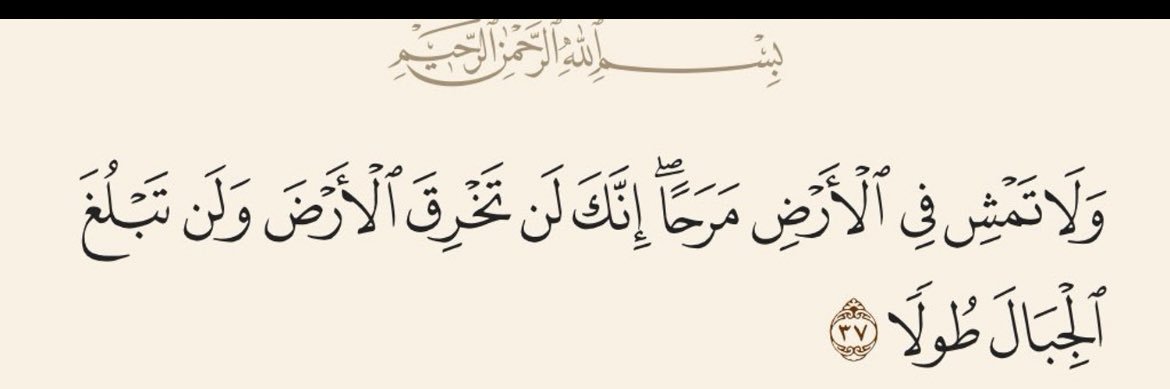 بِسْمِ ٱللَّهِ ٱلرَّحْمَٰنِ ٱلرَّحِيمِ
وَلَا تَمْشِ فِي ٱلْأَرْضِ مَرَحًاۖ إِنَّكَ لَن تَخْرِقَ ٱلْأَرْضَ وَلَن تَبْلُغَ
ٱلْجِبَالَ طُولًا ٣٧